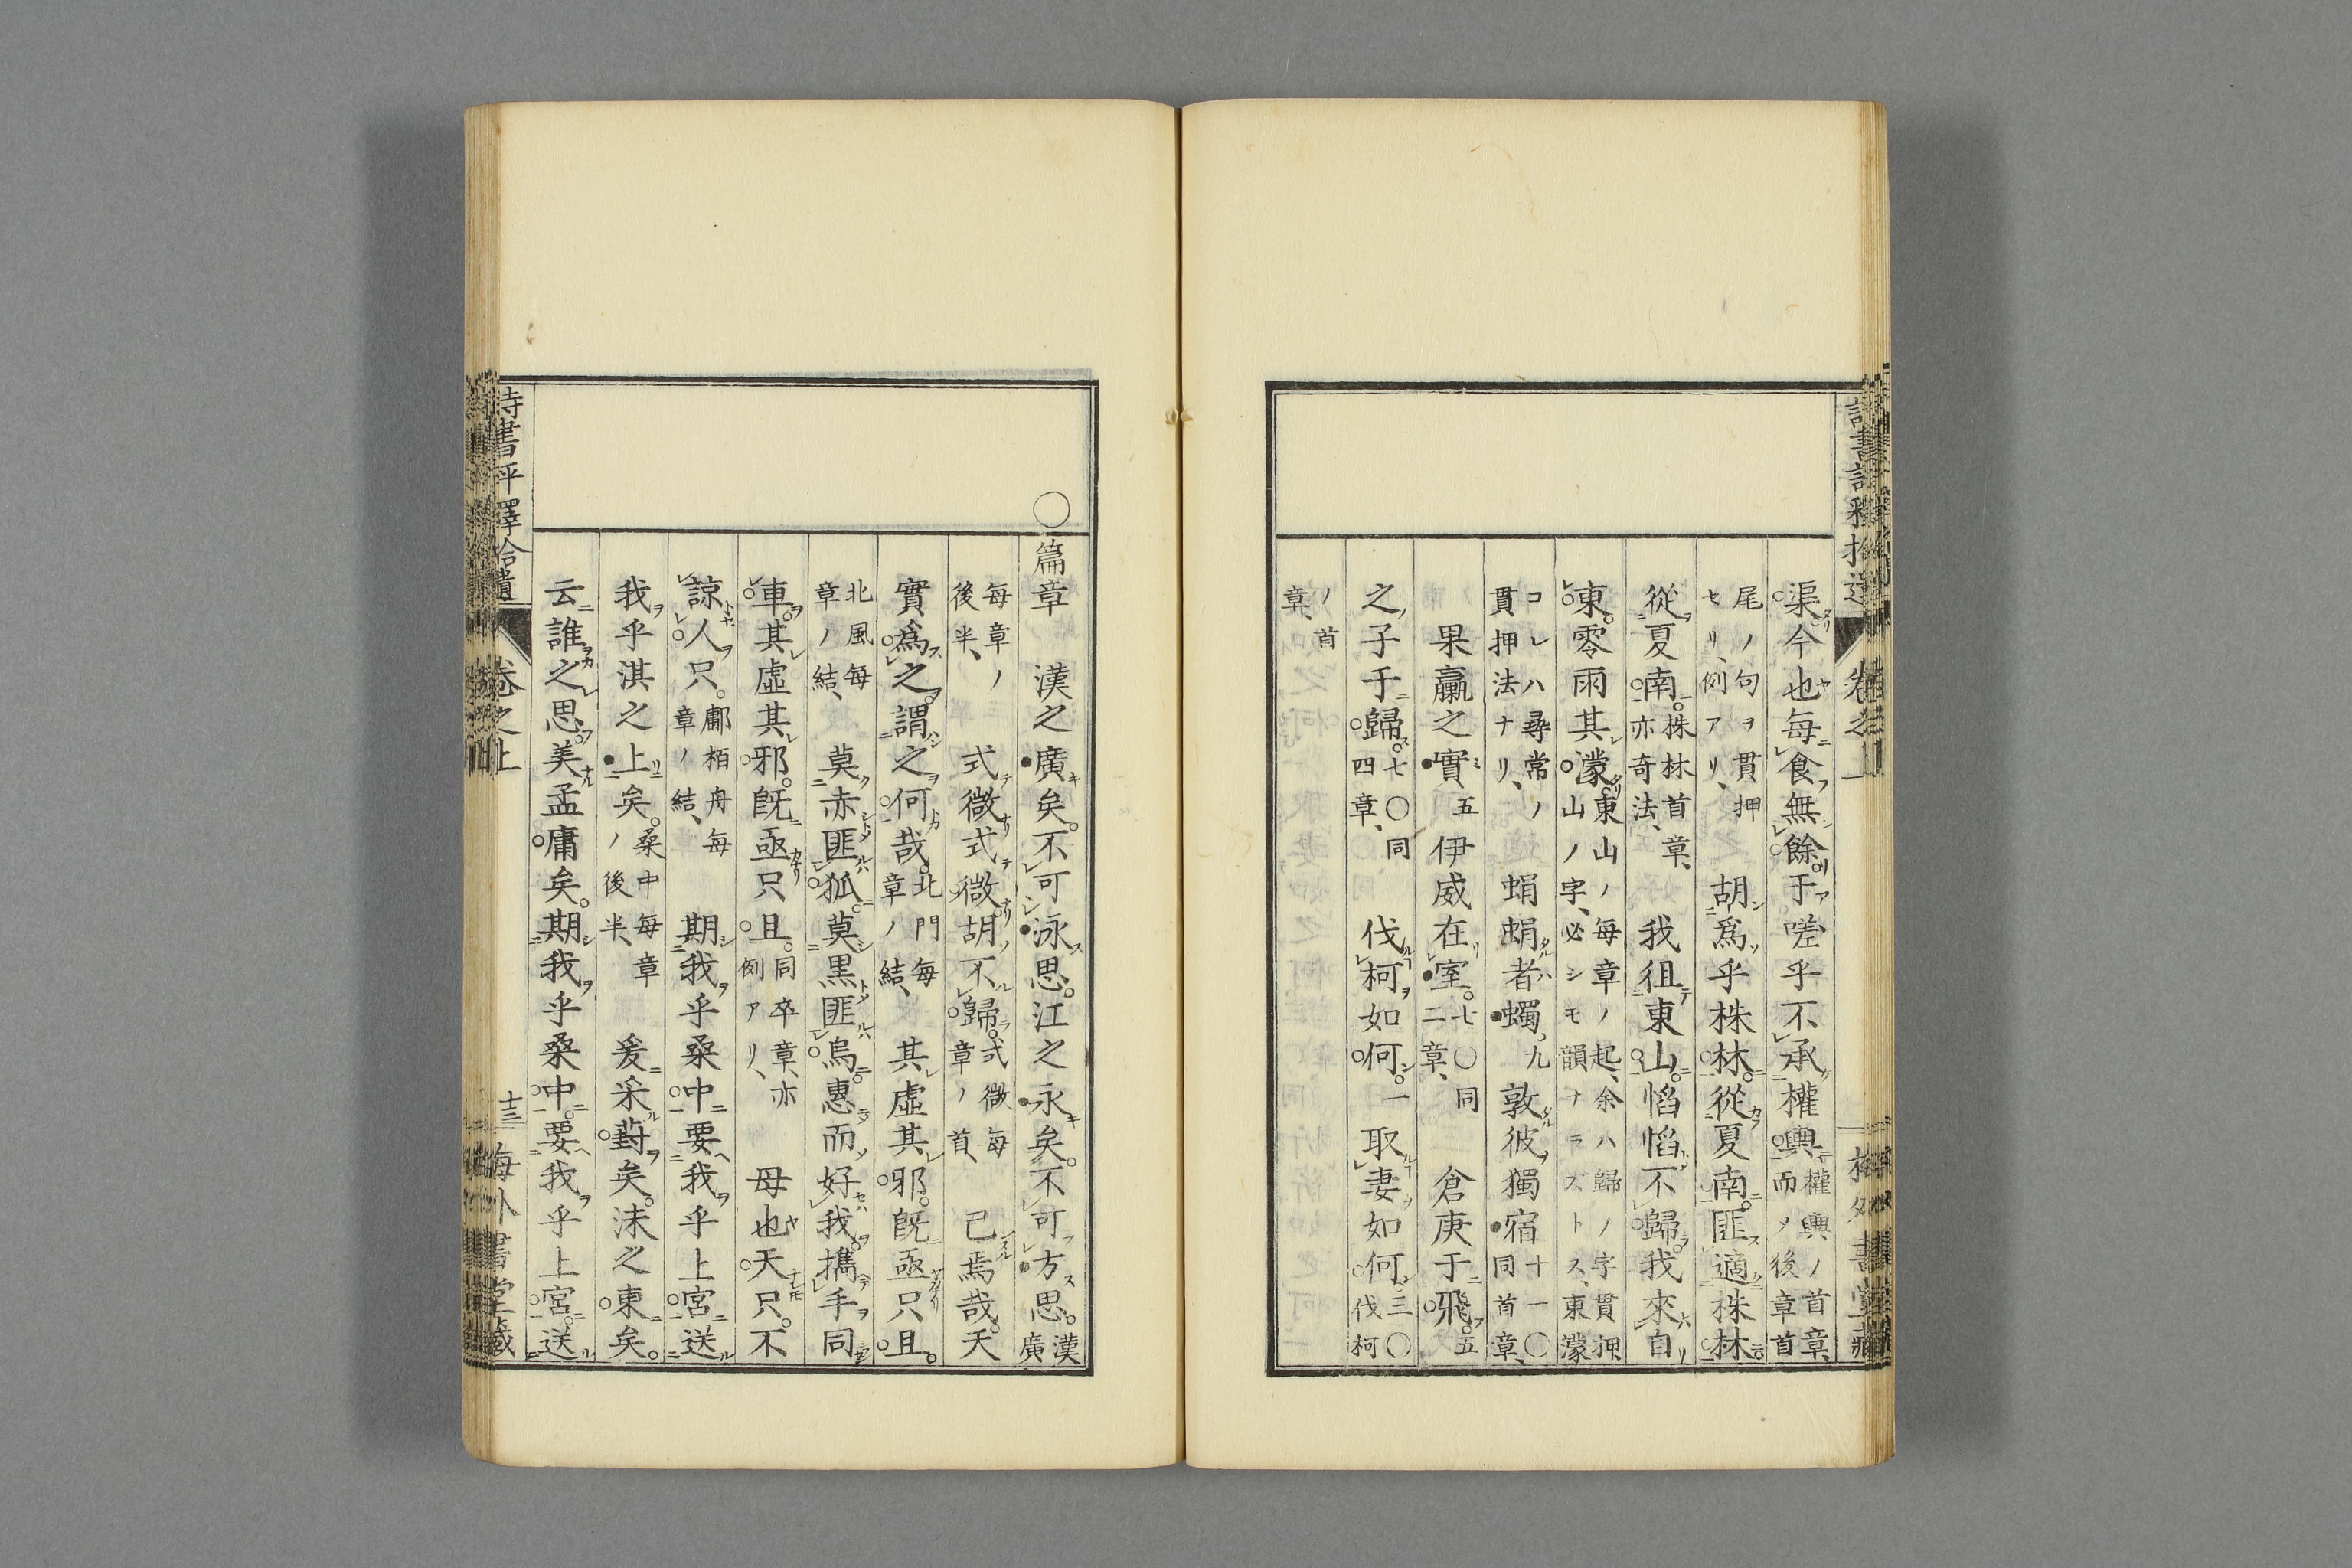 詩書評釋拾遺 卷之上 梅外書堂藏
渠。今也每食無餘。于嗟乎不承權輿權輿ノ首章、而ノ後章首
尾ノ句ヲ貫押セリ、例アリ、 胡爲乎株林。從夏南。匪適株林。
從夏南。株林首章、亦奇法、 我徂東山。慆慆不歸。我來自
東。零雨其濛。東山ノ每章ノ起、余ハ歸ノ字貫押、山ノ字、必シモ韻ナラズトス、東濛
コレハ尋常ノ貫押法ナリ、 蜎蜎者蠋。九 敦彼獨宿十一〇同首章、
果臝之實五 伊威在室。七〇同二章、 倉庚于飛。五
之子于歸。七〇同四章、 伐柯如何。一 取妻如何。三〇伐柯
ノ首章、
〇篇章 漢之廣矣。不可泳思。江之永矣。不可方思。漢廣
每章ノ後半、 式微式微胡不歸。式微每章ノ首、 已焉哉。天
實爲之。謂之何哉。北門每章ノ結、 其虛其邪。旣亟只且。
北風每章ノ結、 莫赤匪狐。莫黑匪烏。惠而好我。攜手同
車。其虛其邪。旣亟只且。同卒章、亦例アリ、 母也天只。不
諒人只。鄘栢舟每章ノ結、 期我乎桑中要我乎上宮送
我乎淇之上矣。桑中每章ノ後半、 爰采葑矣。沬之東矣。
云誰之思。美孟庸矣。期我乎桑中。要我乎上宮。送
詩書評釋拾遺 卷之上 十三 梅外書堂藏